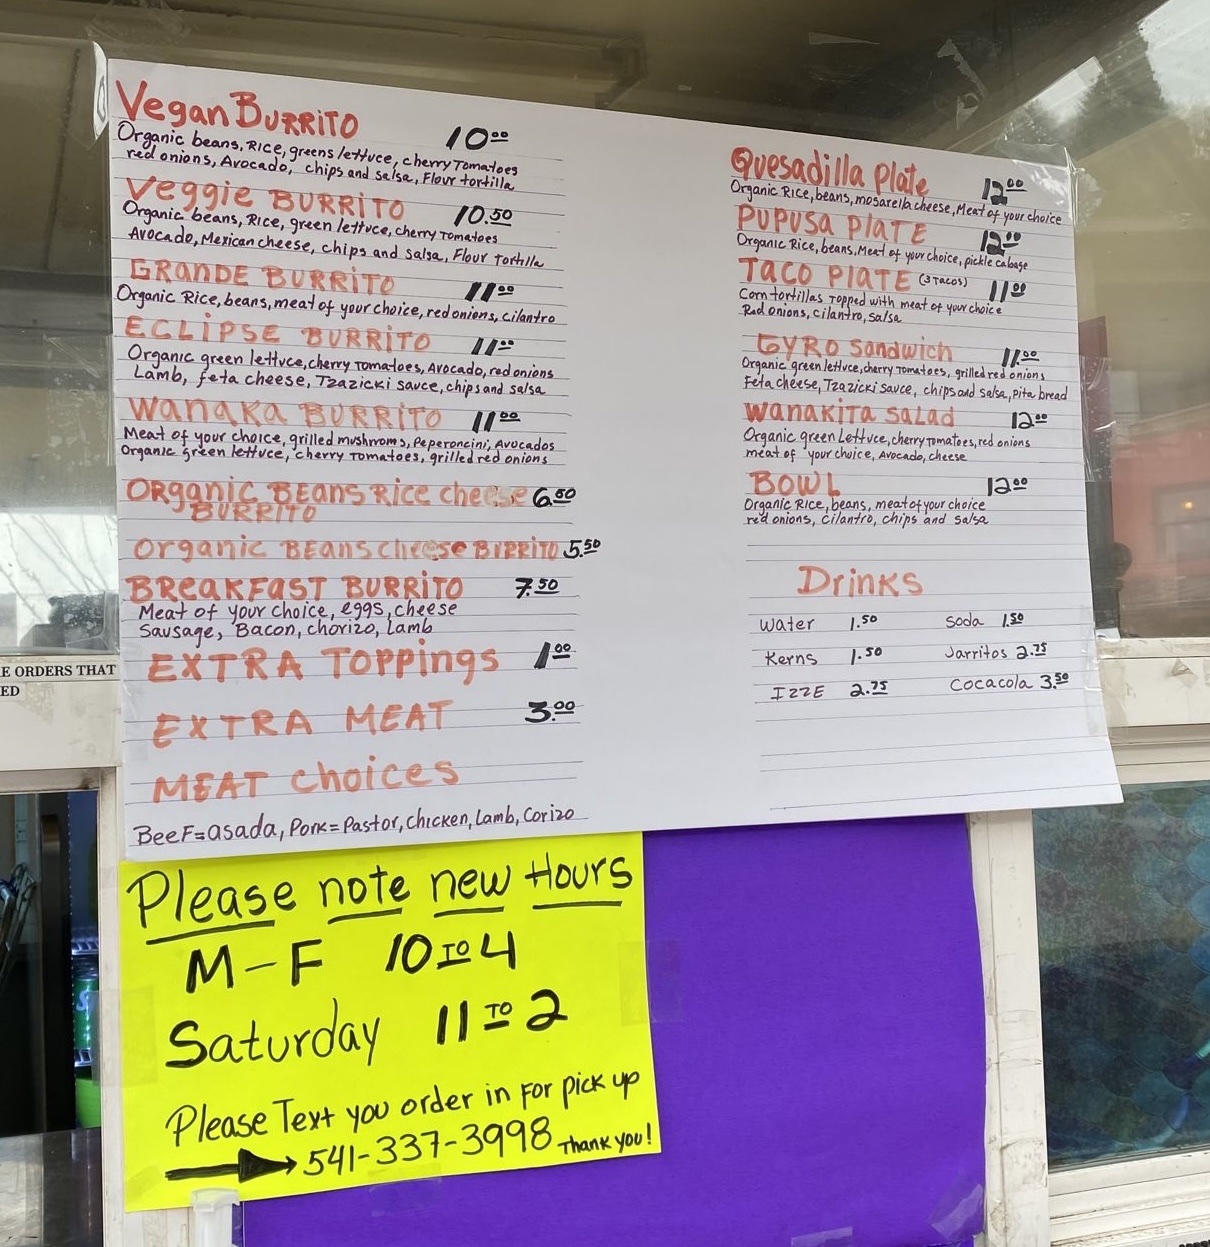 Vegan BURRITO 10.00
Organic beans, Rice, greens lettuce, cherry Tomatoes
red onions, Avocado, chips and salsa, Flour tortilla
Veggie BURRITO 10.50
Organic beans, Rice, green lettuce, cherry Tomatoes
Avocado, Mexican cheese, chips and salsa, Flour Tortilla
GRANDE BURRITO 11.00
Organic Rice, beans, meat of your choice, red onions, cilantro
ECLIPSE BURRITO 11.00
Organic green lettuce, cherry Tomatoes, Avocado, red onions
Lamb, feta cheese, Tzazicki sauce, chips and salsa
Wanaka BURRITO 11.00
Meat of your choice, grilled mushroms, Peperoncini, Avocados
Organic green lettuce, cherry Tomatoes, grilled red onions
Organic BEANS Rice cheese 6.50
BURRITO
Organic BEANS cheese BURRITO 5.50
BREAKFAST BURRITO 7.50
Meat of your choice, eggs, cheese
Sausage, Bacon, chorizo, Lamb
EXTRA Toppings 1.00
EXTRA MEAT 3.00
MEAT Choices
BeeF=asada, Pork=Pastor, chicken, Lamb, Corizo
Quesadilla Plate 12.00
Organic Rice, beans, mosarella cheese, Meat of your choice
PUPUSA PLATE 12.00
Organic Rice, beans, Meat of your choice, pickle cabage
TACO PLATE (3 TACOS) 11.00
Corn tortillas Topped with meat of your choice
Red onions, cilantro, salsa
GYRO Sandwich 11.00
Organic green lettuce, cherry Tomatoes, grilled red onions
Feta cheese, Tzazicki sauce, chips and salsa, pita bread
WANAKITA SALAD 12.00
Organic green Lettuce, cherry Tomatoes, red onions
meat of your choice, Avocado, cheese
BOWL 12.00
Organic Rice, beans, meat of your choice
red onions, cilantro, chips and salsa
Drinks
Water 1.50 Soda 1.50
Kerns 1.50 Jarritos 2.75
IZZE 2.75 Cocacola 3.50
E ORDERS THAT
ED
Please note new Hours
M-F 10 TO 4
Saturday 11 TO 2
Please Text you order in For pick up
541-337-3998 Thank you!